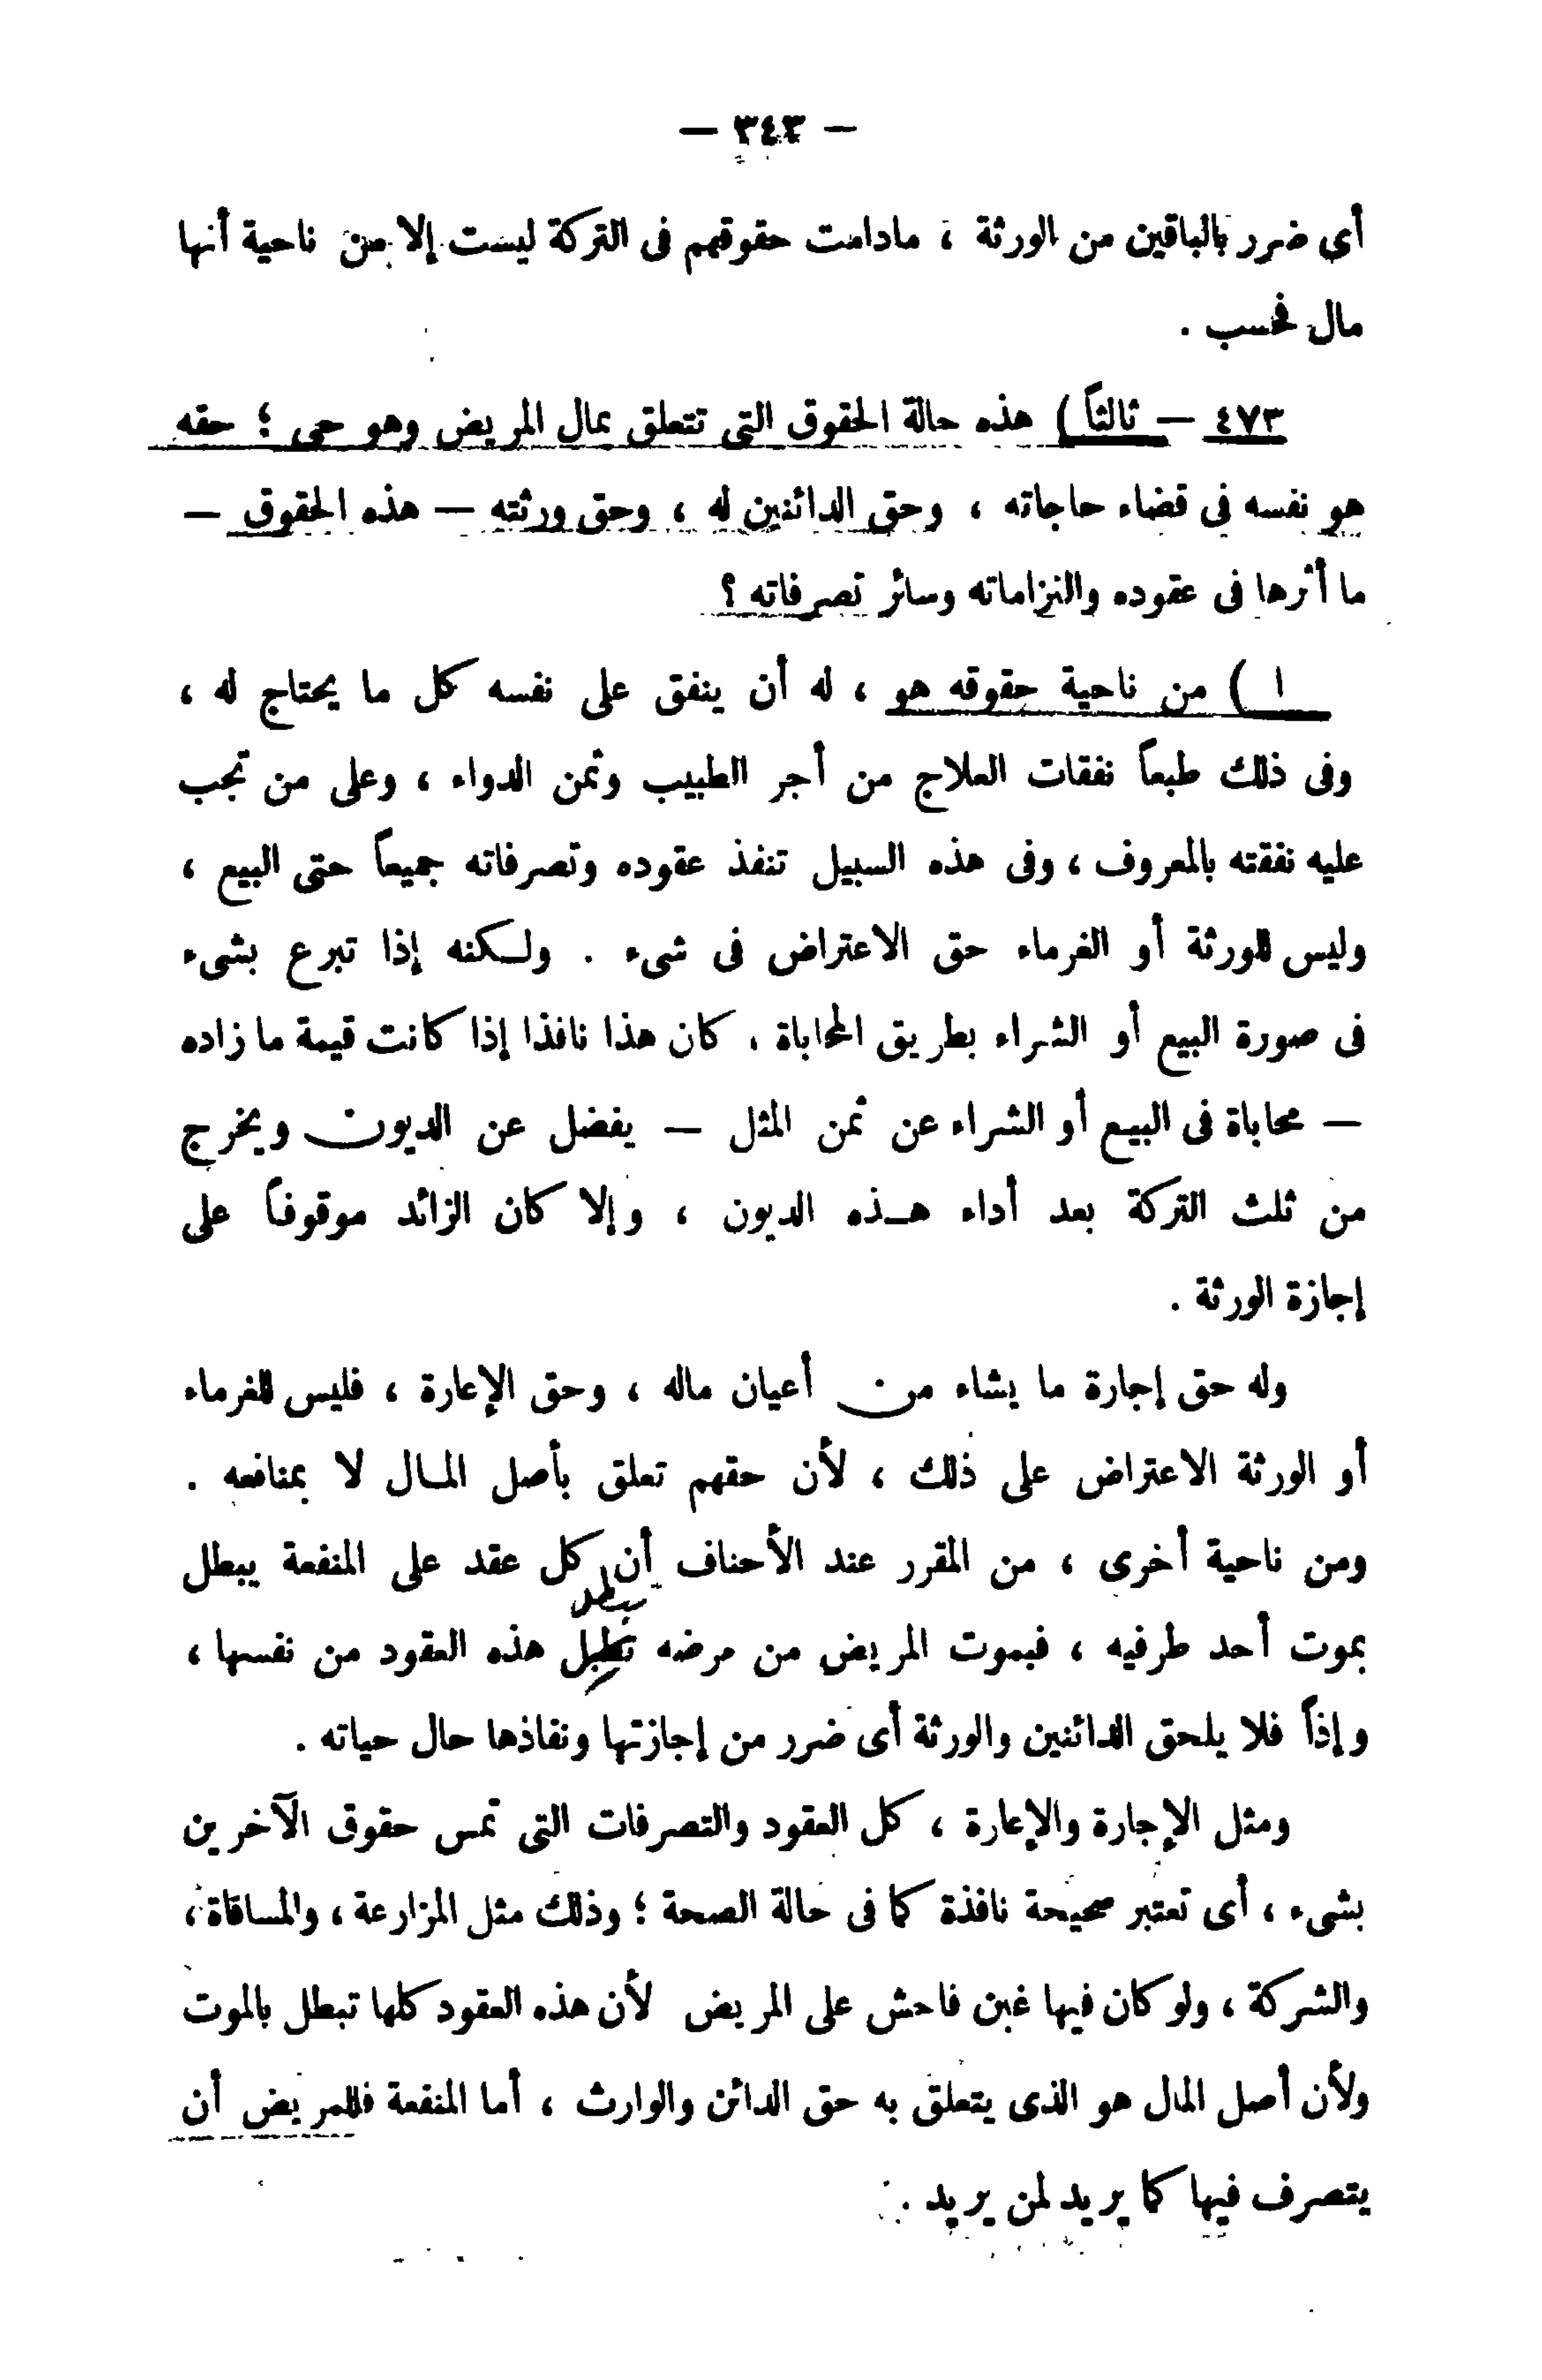 — ٣٤٣ —
أى ضرر بالباقين من الورثة ، مادامت حقوقهم فى التركة ليست إلا من ناحية أنها
مال فحسب .
٤٧٣ — ثالثاً ) هذه حالة الحقوق التى تتعلق بمال المريض وهو حى ؛ حقه
هو نفسه فى قضاء حاجاته ، وحق الدائنين له ، وحق ورثته — هذه الحقوق —
ما أثرها فى عقوده والتزاماته وسائر تصرفاته ؟
ا ) من ناحية حقوقه هو ، له أن ينفق على نفسه كل ما يحتاج له ،
وفى ذلك طبعاً نفقات العلاج من أجر الطبيب وثمن الدواء ، وعلى من تجب
عليه نفقته بالمعروف ، وفى هذه السبيل تنفذ عقوده وتصرفاته جميعاً حتى البيع ،
وليس للورثة أو الغرماء حق الاعتراض فى شىء . ولكنه إذا تبرع بشىء
فى صورة البيع أو الشراء بطريق المحاباة ، كان هذا نافذا إذا كانت قيمة ما زاده
— محاباة فى البيع أو الشراء عن ثمن المثل — يفضل عن الديون ويخرج
من ثلث التركة بعد أداء هذه الديون ، وإلا كان الزائد موقوفاً على
إجازة الورثة .
وله حق إجارة ما يشاء من أعيان ماله ، وحق الإعارة ، فليس للغرماء
أو الورثة الاعتراض على ذلك ، لأن حقهم تعلق بأصل المال لا بمنافعه .
ومن ناحية أخرى ، من المقرر عند الأحناف أن كل عقد على المنفعة يبطل
تبطل
بموت أحد طرفيه ، فبموت المريض من مرضه تطبل هذه العقود من نفسها ،
وإذاً فلا يلحق الدائنين والورثة أى ضرر من إجازتها ونفاذها حال حياته .
ومثل الإجارة والإعارة ، كل العقود والتصرفات التى تمس حقوق الآخرين
بشىء ، أى تعتبر صحيحة نافذة كما فى حالة الصحة ؛ وذلك مثل المزارعة ، والمساقاة ،
والشركة ، ولو كان فيها غبن فاحش على المريض لأن هذه العقود كلها تبطل بالموت
ولأن أصل المال هو الذى يتعلق به حق الدائن والوارث ، أما المنفعة فللمريض أن
يتصرف فيها كما يريد لمن يريد .